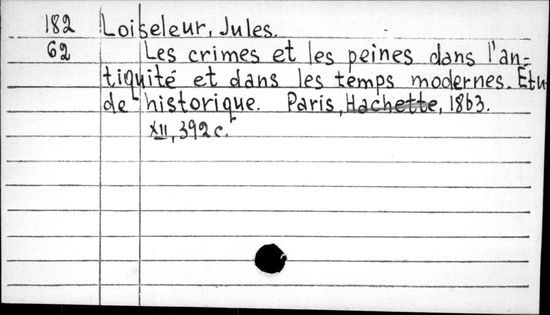 182 Loiseleur, Jules.
62 Les crimes et les peines dans l'an=
tiquité et dans les temps modernes. Etu
de historique. Paris, Hachette, 1863.
XII, 392 c.